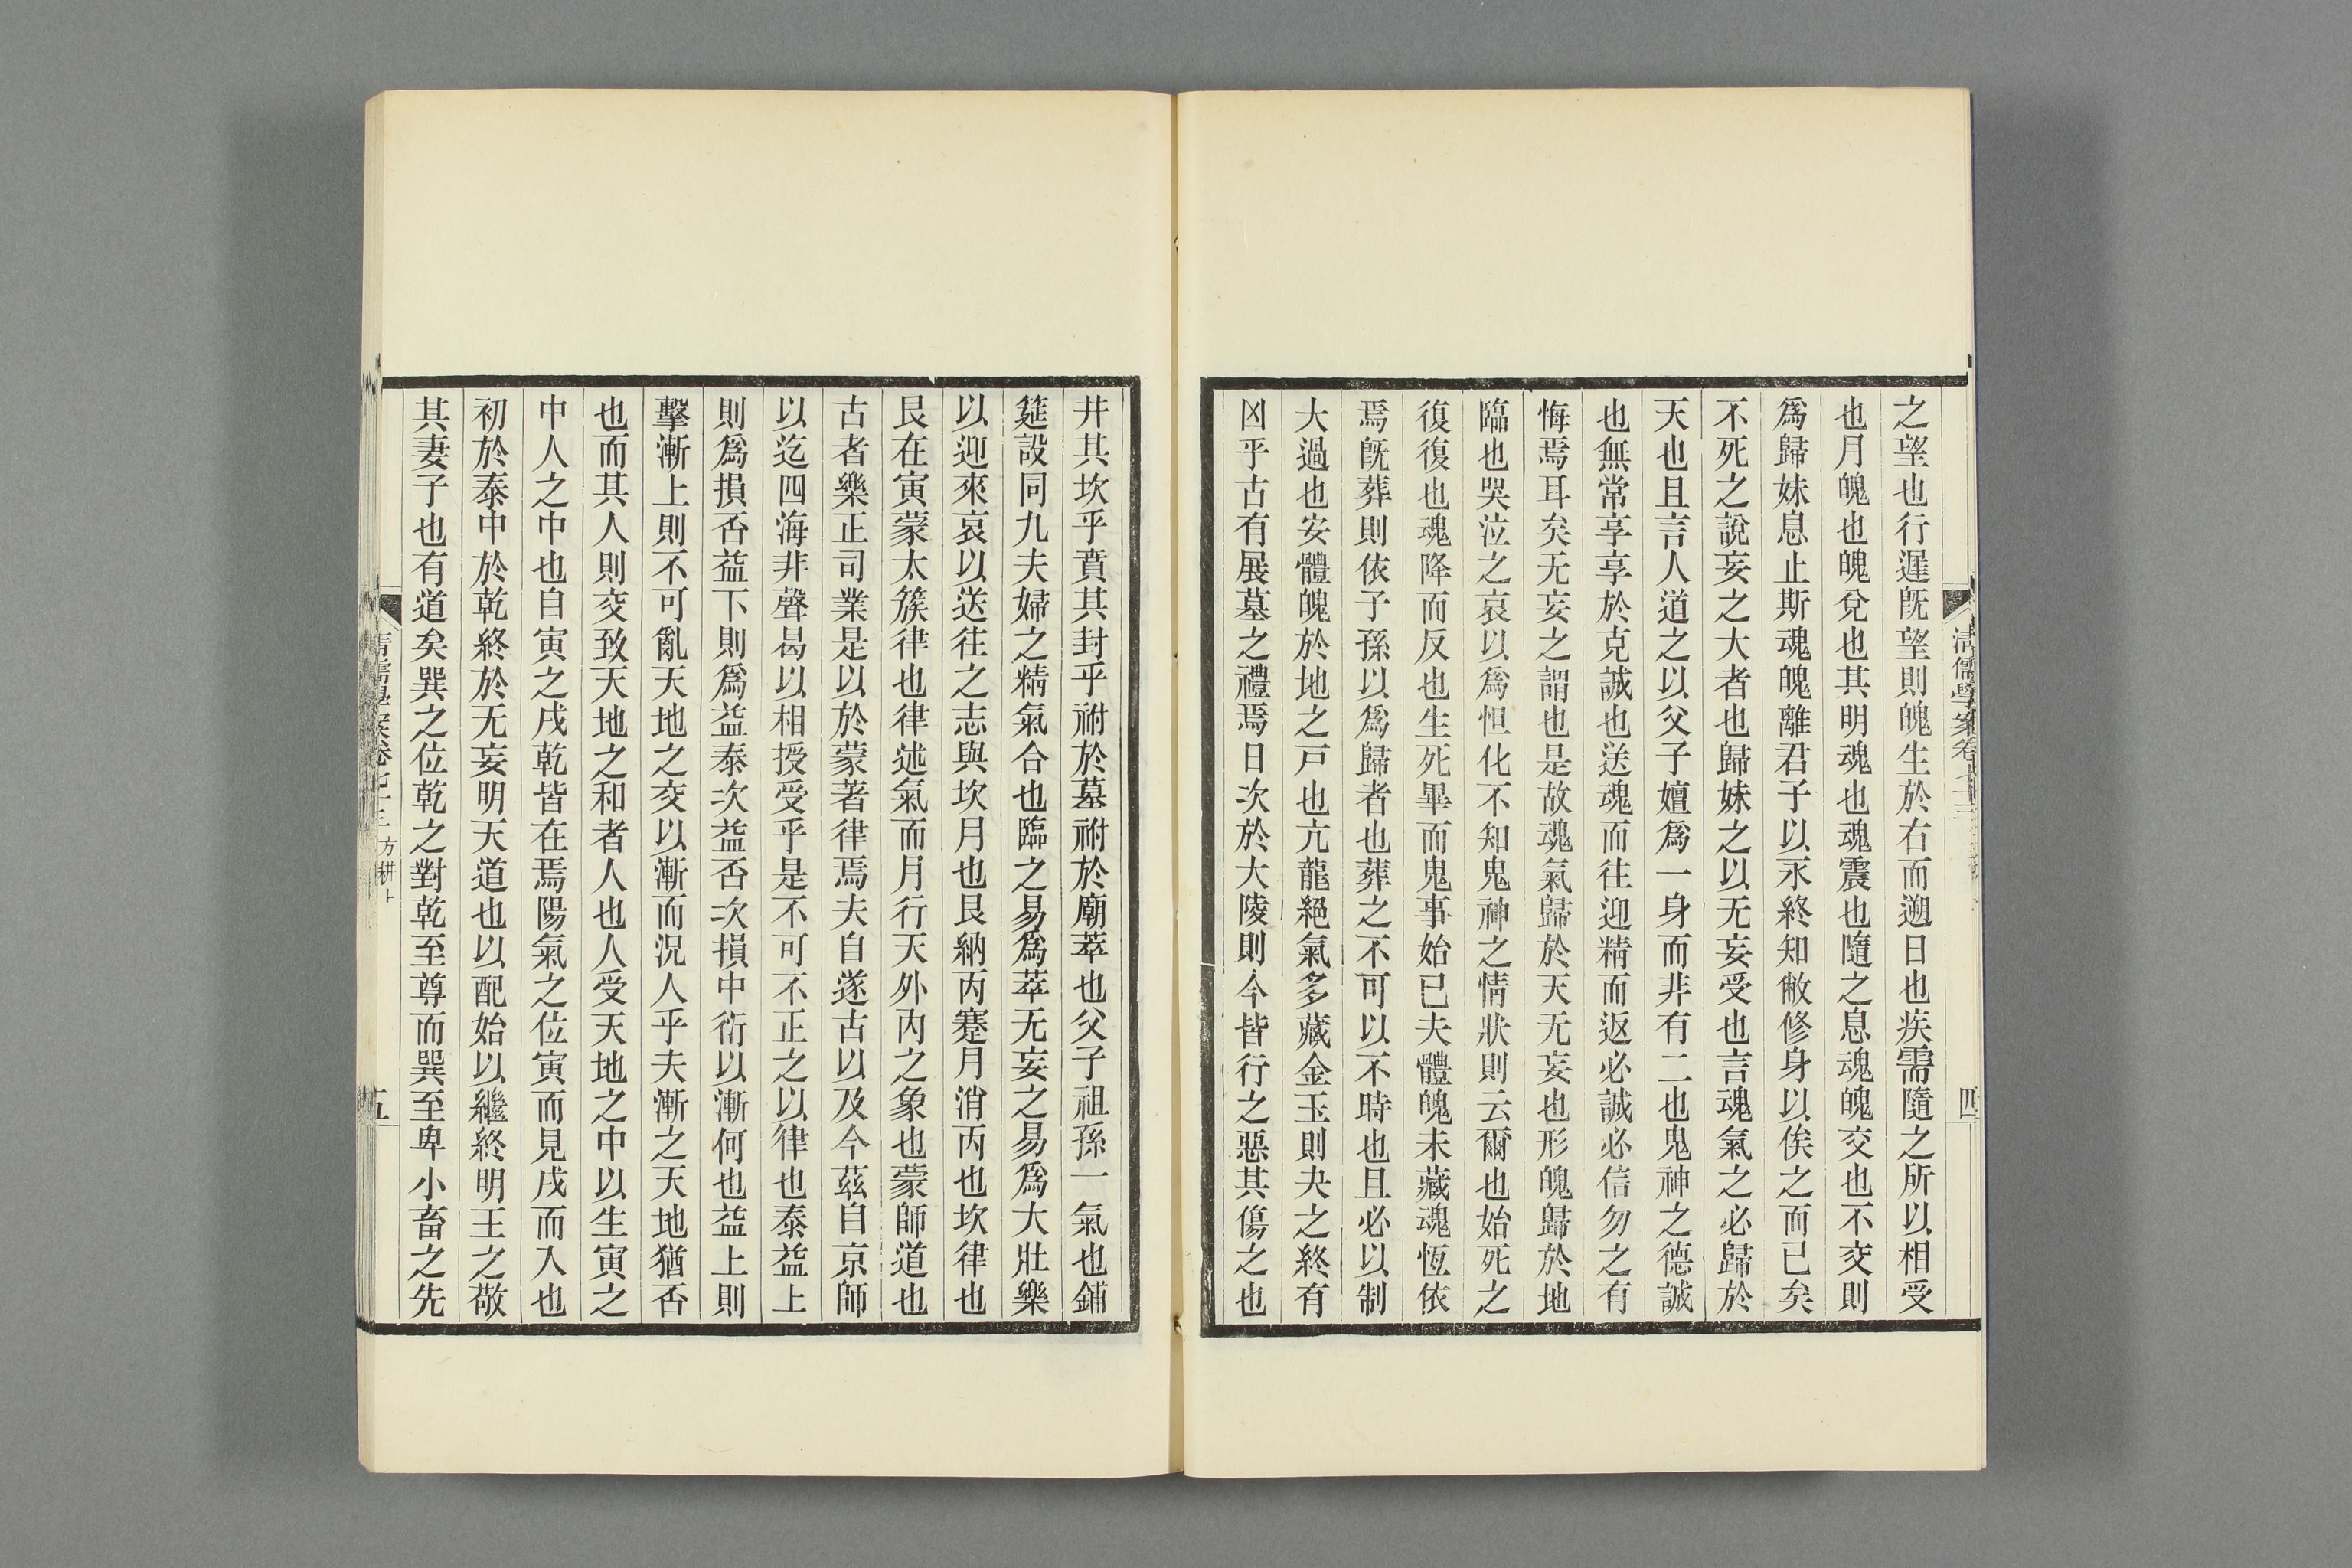 之望也行遲旣望則魄生於右而遡日也疾需隨之所以相受
也月魄也魄兌也其明魂也魂震也隨之息魂魄交也不交則
爲歸妹息止斯魂魄離君子以永終知敝修身以俟之而已矣
不死之說妄之大者也歸妹之以无妄受也言魂氣之必歸於
天也且言人道之以父子嬗爲一身而非有二也鬼神之德誠
也無常享享於克誠也送魂而往迎精而返必誠必信勿之有
悔焉耳矣无妄之謂也是故魂氣歸於天无妄也形魄歸於地
臨也哭泣之哀以爲怛化不知鬼神之情狀則云爾也始死之
復復也魂降而反也生死畢而鬼事始已夫體魄未藏魂恆依
焉旣葬則依子孫以爲歸者也葬之不可以不時也且必以制
大過也安體魄於地之戸也亢龍絕氣多藏金玉則夬之終有
凶乎古有展墓之禮焉日次於大陵則今皆行之惡其傷之也
清儒學案卷七十三
四
井其坎乎賁其封乎祔於墓祔於廟萃也父子祖孫一氣也鋪
筵設同九夫婦之精氣合也臨之易爲萃无妄之易爲大壯樂
以迎來哀以送往之志與坎月也艮納丙蹇月消丙也坎律也
艮在寅蒙太簇律也律述氣而月行天外內之象也蒙師道也
古者樂正司業是以於蒙著律焉夫自邃古以及今茲自京師
以迄四海非聲曷以相授受乎是不可不正之以律也泰益上
則爲損否益下則爲益泰次益否次損中衍以漸何也益上則
擊漸上則不可亂天地之交以漸而況人乎夫漸之天地猶否
也而其人則交致天地之和者人也人受天地之中以生寅之
中人之中也自寅之戌乾皆在焉陽氣之位寅而見戌而入也
初於泰中於乾終於无妄明天道也以配始以繼終明王之敬
其妻子也有道矣巽之位乾之對乾至尊而巽至卑小畜之先
清儒學案卷七十三 方耕上
五